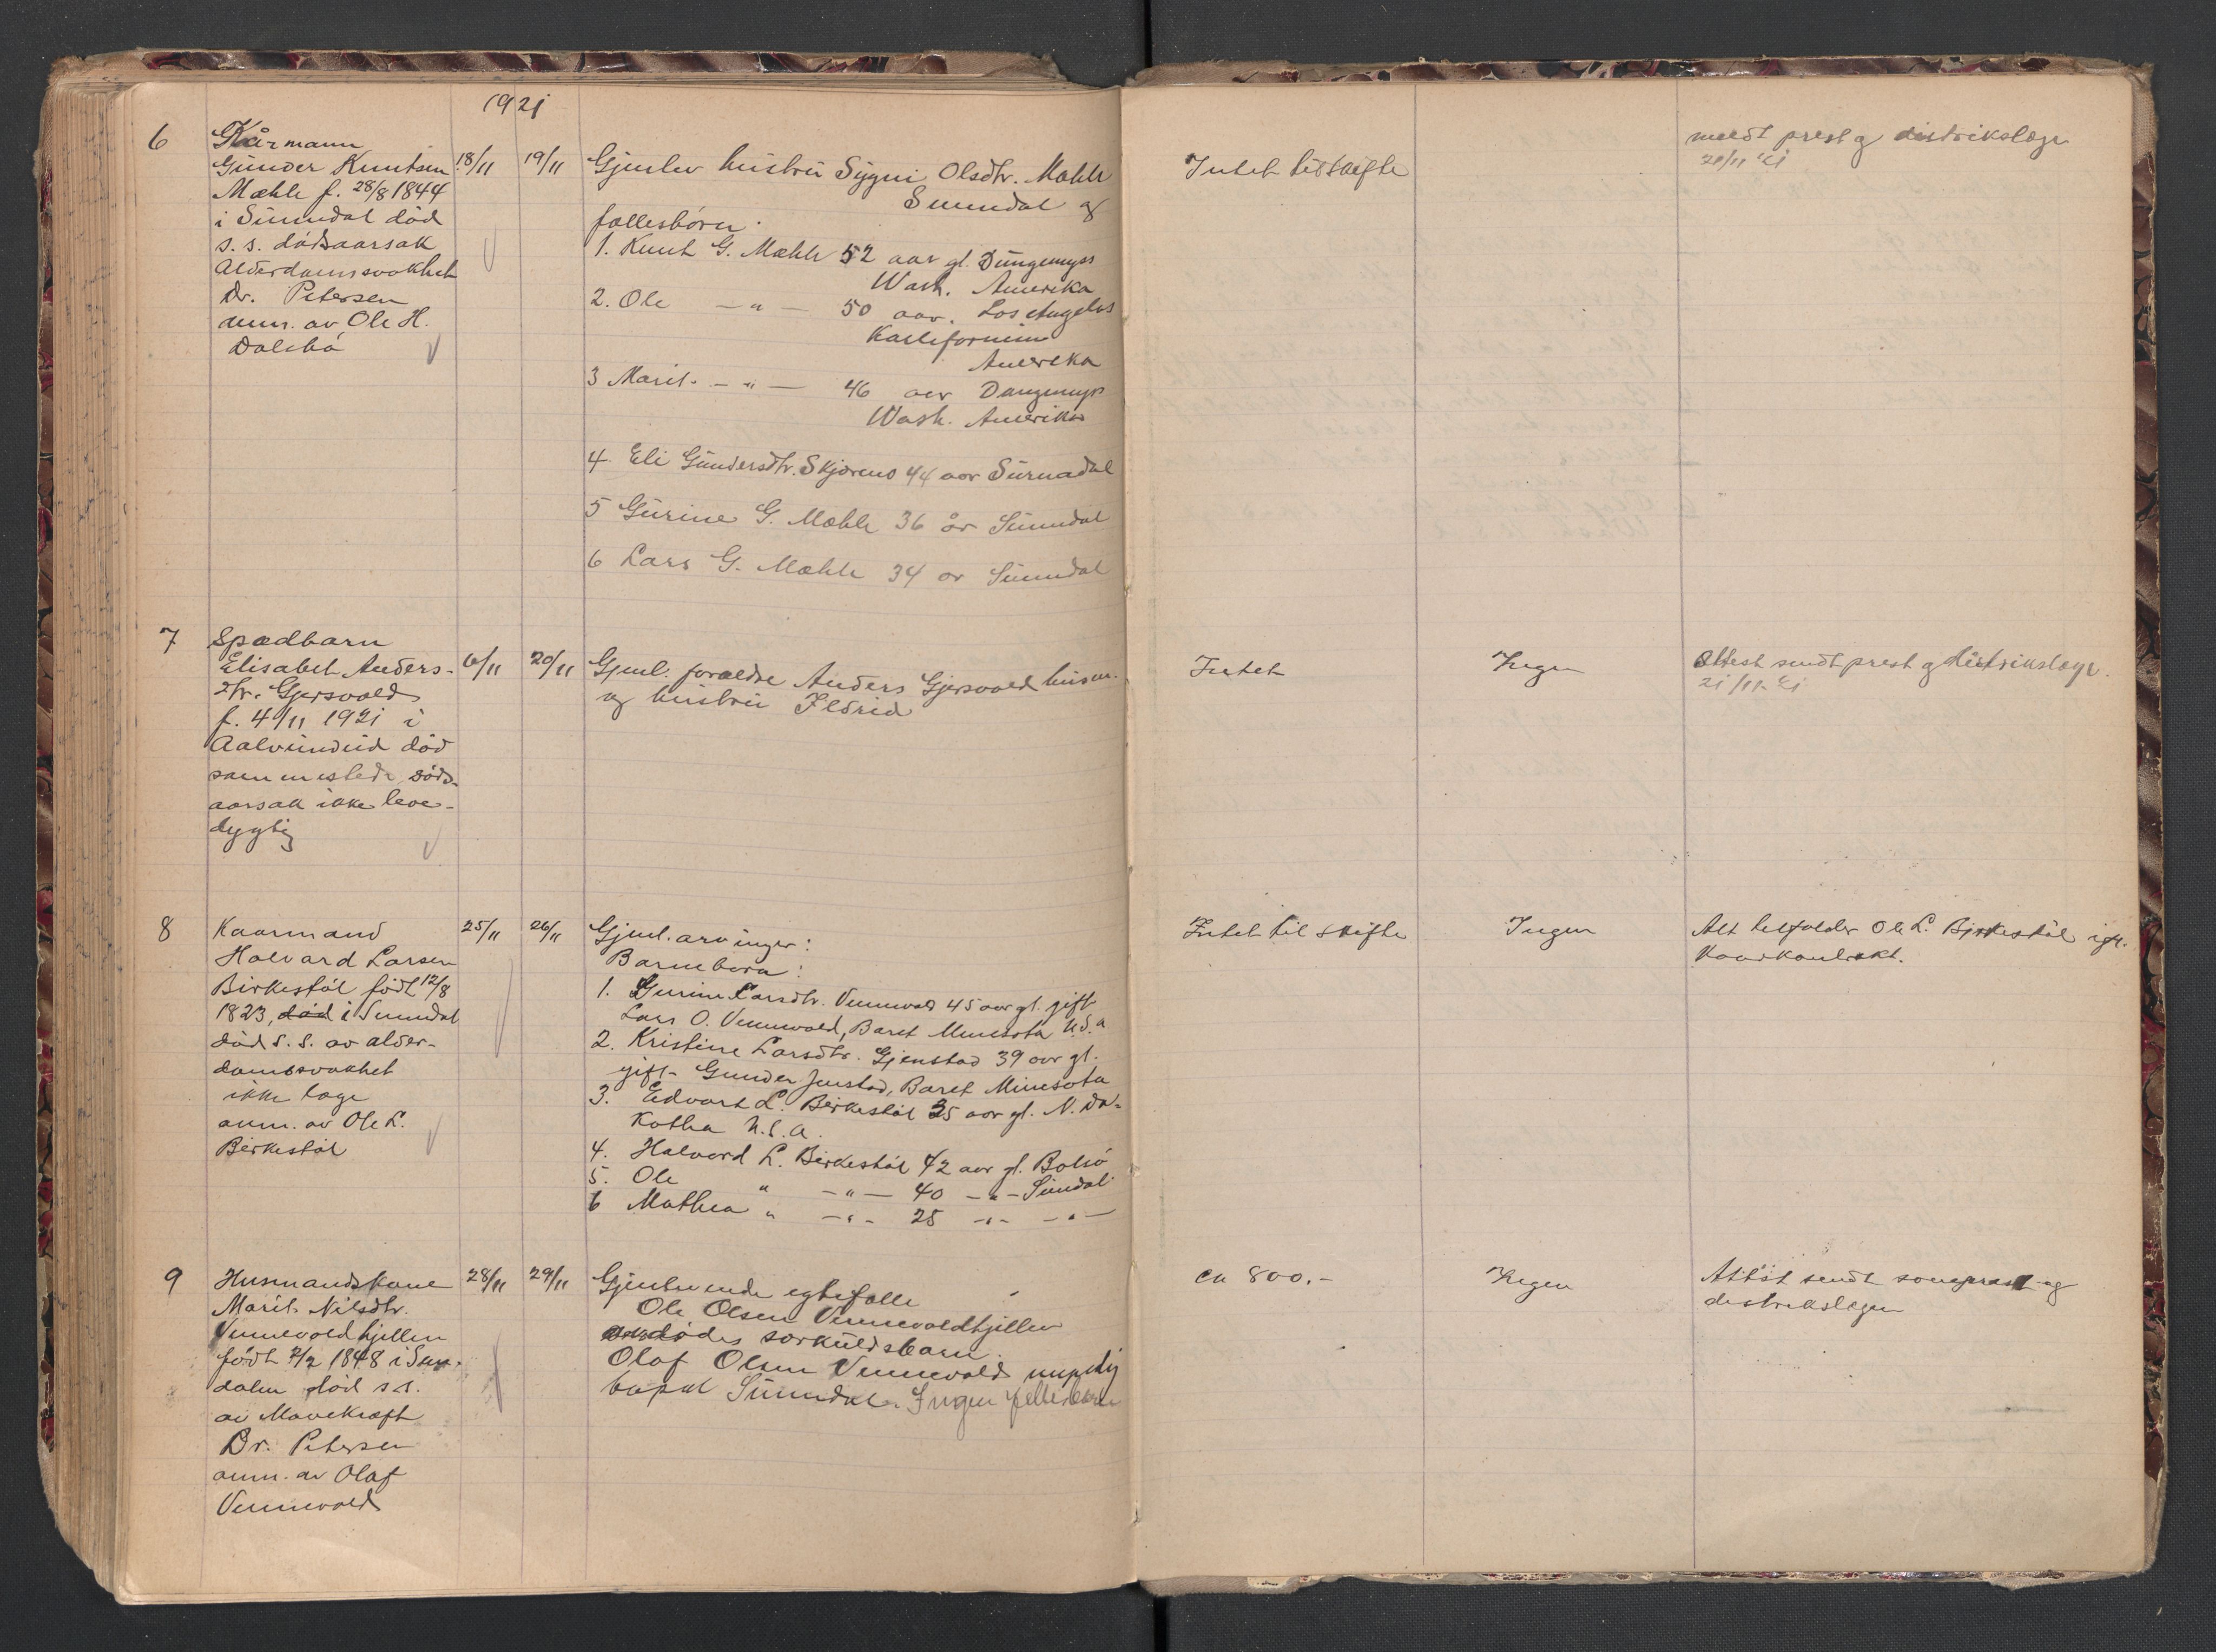 1921
6
Kårmann
Gunder Knutsen
Mæhle f. 28/8 1844
i Sunndal död
s. s. dödsaarsak
Alderdomssvakhet
Dr. Petersen
anm. av Ole H.
Dalebö
18/11
19/11
Gjenlev hustru Sygni Olsdtr. Mæhle
Sunndal og
fællesbörn.
1. Knut G. Mæhle 52 aar gl.
Wash. Amerika
2. Ole — " — 50 aar. Los Angelos
Kalifornien
Amerika
3 Marit. — " — 46 aar
Wash. Amerika
4. Eli Gundersdtr. Skjøremo 44 aar Surnadal
5 Gurine G. Mæhle 36 år Sunndal
6 Lars G. Mæhle 34 år Sunndal
Intet til skifte
meldt prest og distrikslæge
21/11 21
7
Spædbarn
Elisabet Anders-
dtr. Gjersvold
f. 4/11 1921 i
Aalvundeid död
sammesteds döds-
aarsak ikke leve-
dygtig
6/11
20/11
Gjenl. foræLdre Anders Gjersvold husm.
og hustru Ildrid
Intet
Ingen
Attest sendt prest og distrikslæge.
21/11-21
8
Kaarmand
Halvard Larsen
Birkestöl födt 12/8
1823, död i Sunndal
död s. s. av alder-
domssvakhet
ikke læge
anm. av Ole L.
Birkestöl
25/11
26/11
Gjenl. arvinger:
Barnebørn:
1. Gurine Larsdtr. Vennevold 45 aar gl. gift
Lars O. Vennevold, Baret Minesota U.S.a
2. Kristine Larsdtr. Gjenstad 39 aar gl.
gift Gunder Jenstad, Baret Minesota
3. Edvart L. Birkestöl 35 aar gl. N. Da-
kotha U.S.A.
4. Halvord L. Birkestöl 42 aar gl. Bolsö
5. Ole " — " — 40 — " — Sundal
6 Mathea " — " — 25 — " — — " —
Intet til skifte
Ingen
Alt tilfalder Ole L. Birkestöl ifl.
Kaarkontrakt.
9
Husmandskone
Marit Nilsdtr.
Vennevoldhjellen
födt 7/2 1848 i Sun-
dalen död s. s.
av Mavekræft
Dr. Petersen
anm. av Olaf
Vennevold
28/11
29/11
Gjenlevende egtefælle
Ole Olsen Vennevoldhjellen
avdödes særkuldsbarn
Olaf Olsen Vennevold myndig
bopæl Sunndal. Ingen fellesbarn
ca 800.-
Ingen
Attest sendt sogneprest og
distrikslægen